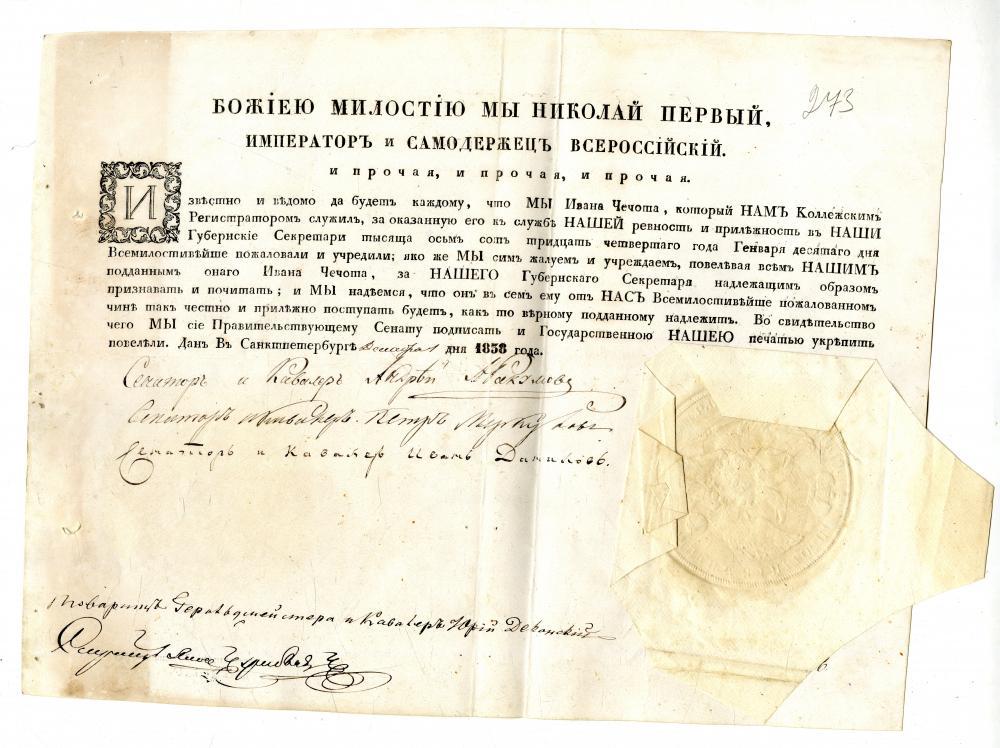 273
БОЖІЕЮ МИЛОСТІЮ МЫ НИКОЛАЙ ПЕРВЫЙ,
ИМПЕРАТОРЪ и САМОДЕРЖЕЦЪ ВСЕРОССІЙСКІЙ.
и прочая, и прочая, и прочая.
Извѣстно и вѣдомо да будетъ каждому, что МЫ Ивана Чечота, который НАМЪ Коллежскимъ
Регистраторомъ служилъ, за оказанную его къ службѣ НАШЕЙ ревность и прилѣжность въ НАШИ
Губернскіе Секретари тысяща осьмъ сотъ тридцать четвертаго года Генваря десятаго дня
Всемилостивѣйше пожаловали и учредили; яко же МЫ симъ жалуемъ и учреждаемъ, повелѣвая всѣмъ НАШИМЪ
подданнымъ онаго Ивана Чечота, за НАШЕГО Губернскаго Секретаря надлежащимъ образомъ
признавать и почитать; и МЫ надѣемся, что онъ въ семъ ему отъ НАСЪ Всемилостивѣйше пожалованномъ
чинѣ такъ честно и прилѣжно поступать будетъ, какъ то вѣрному подданному надлежитъ. Во свидѣтельство
чего МЫ сіе Правительствующему Сенату подписать и Государственною НАШЕЮ печатью укрѣпить
повелѣли. Данъ Въ Санктпетербургѣ дня 1838 года.
Сенаторъ и Кавалеръ Андрей Абакумовъ
Сенаторъ и Кавалеръ Петръ
Сенаторъ и Кавалер Иванъ Даниловъ.
Товарищъ Герольдмейстера и Кавалеръ Юрій